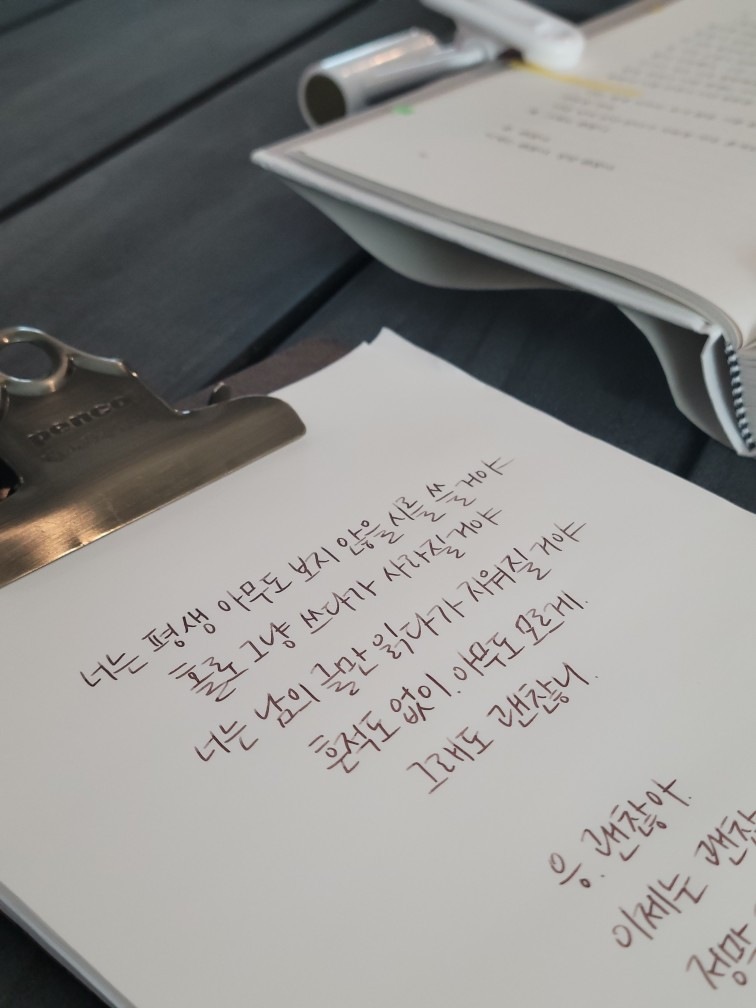 penco
너는 평생 아무도 보지 않을 시를 쓸거야
홀로 그냥 쓰다가 사라질거야
너는 남의 글만 읽다가 지워질거야
흔적도 없이. 아무도 모르게.
그래도 괜찮니.
응. 괜찮아.
이제는
정말